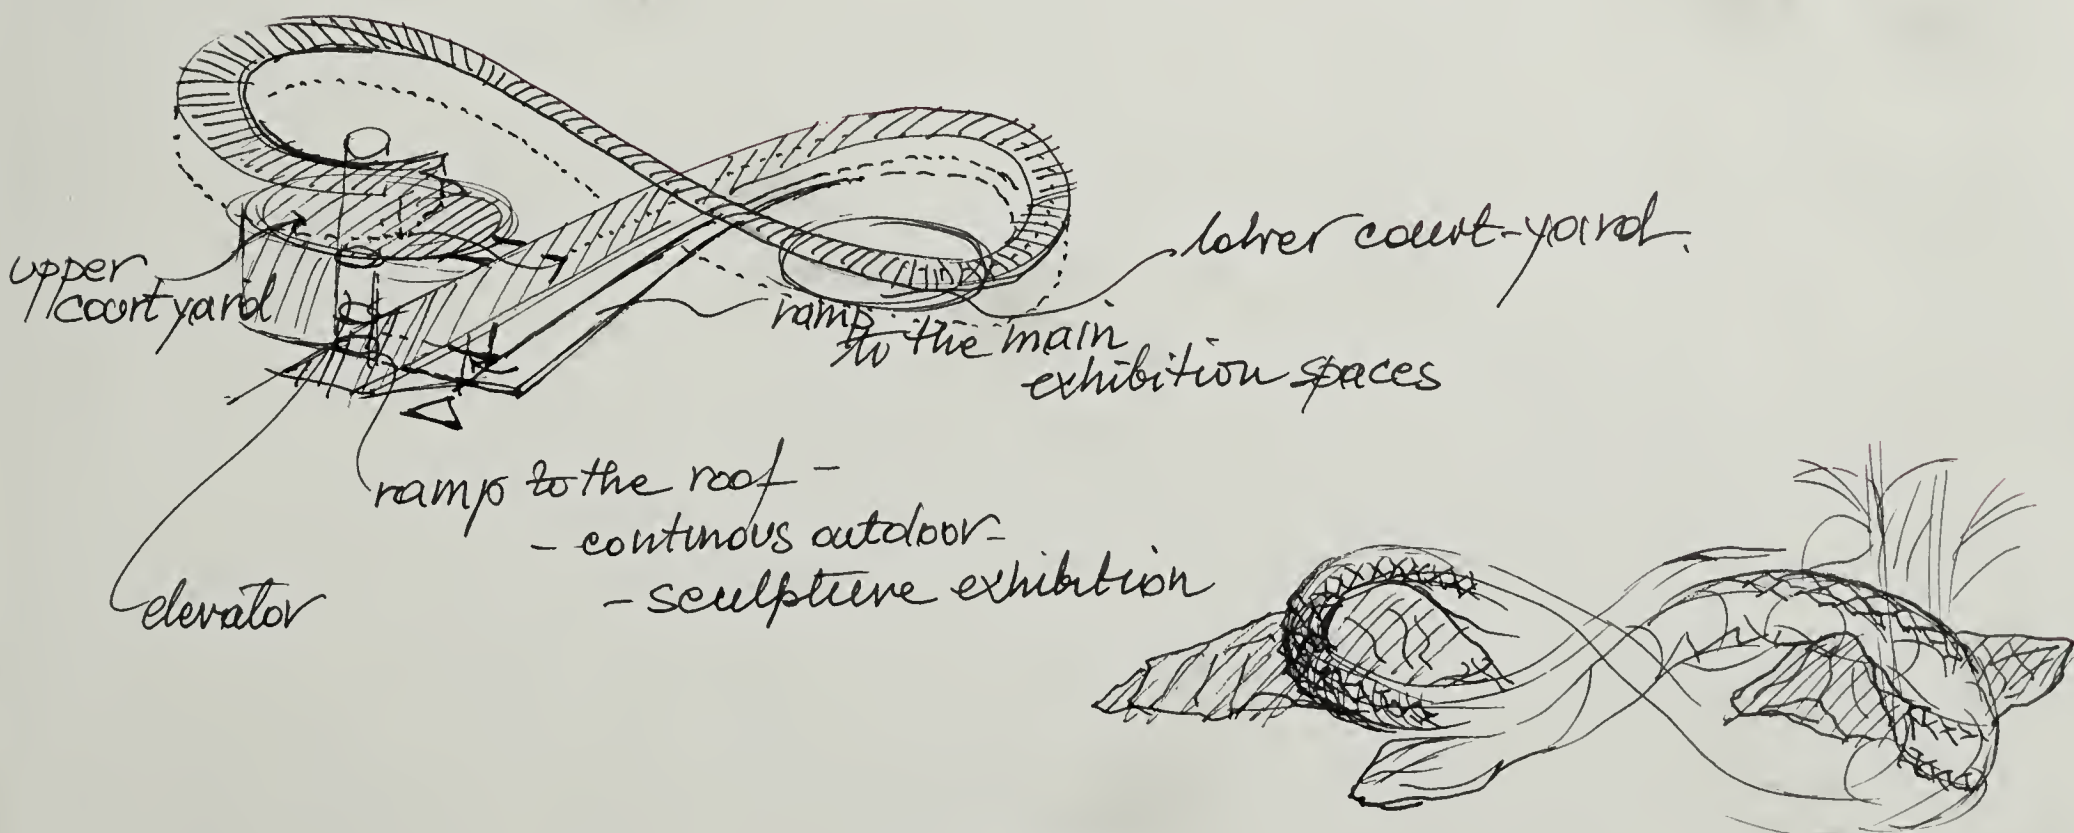 upper
courtyard
lower court-yard.
ramp
to the main
exhibition spaces
ramp to the roof -
- continous outdoor -
- sculpture exhibition
elevator